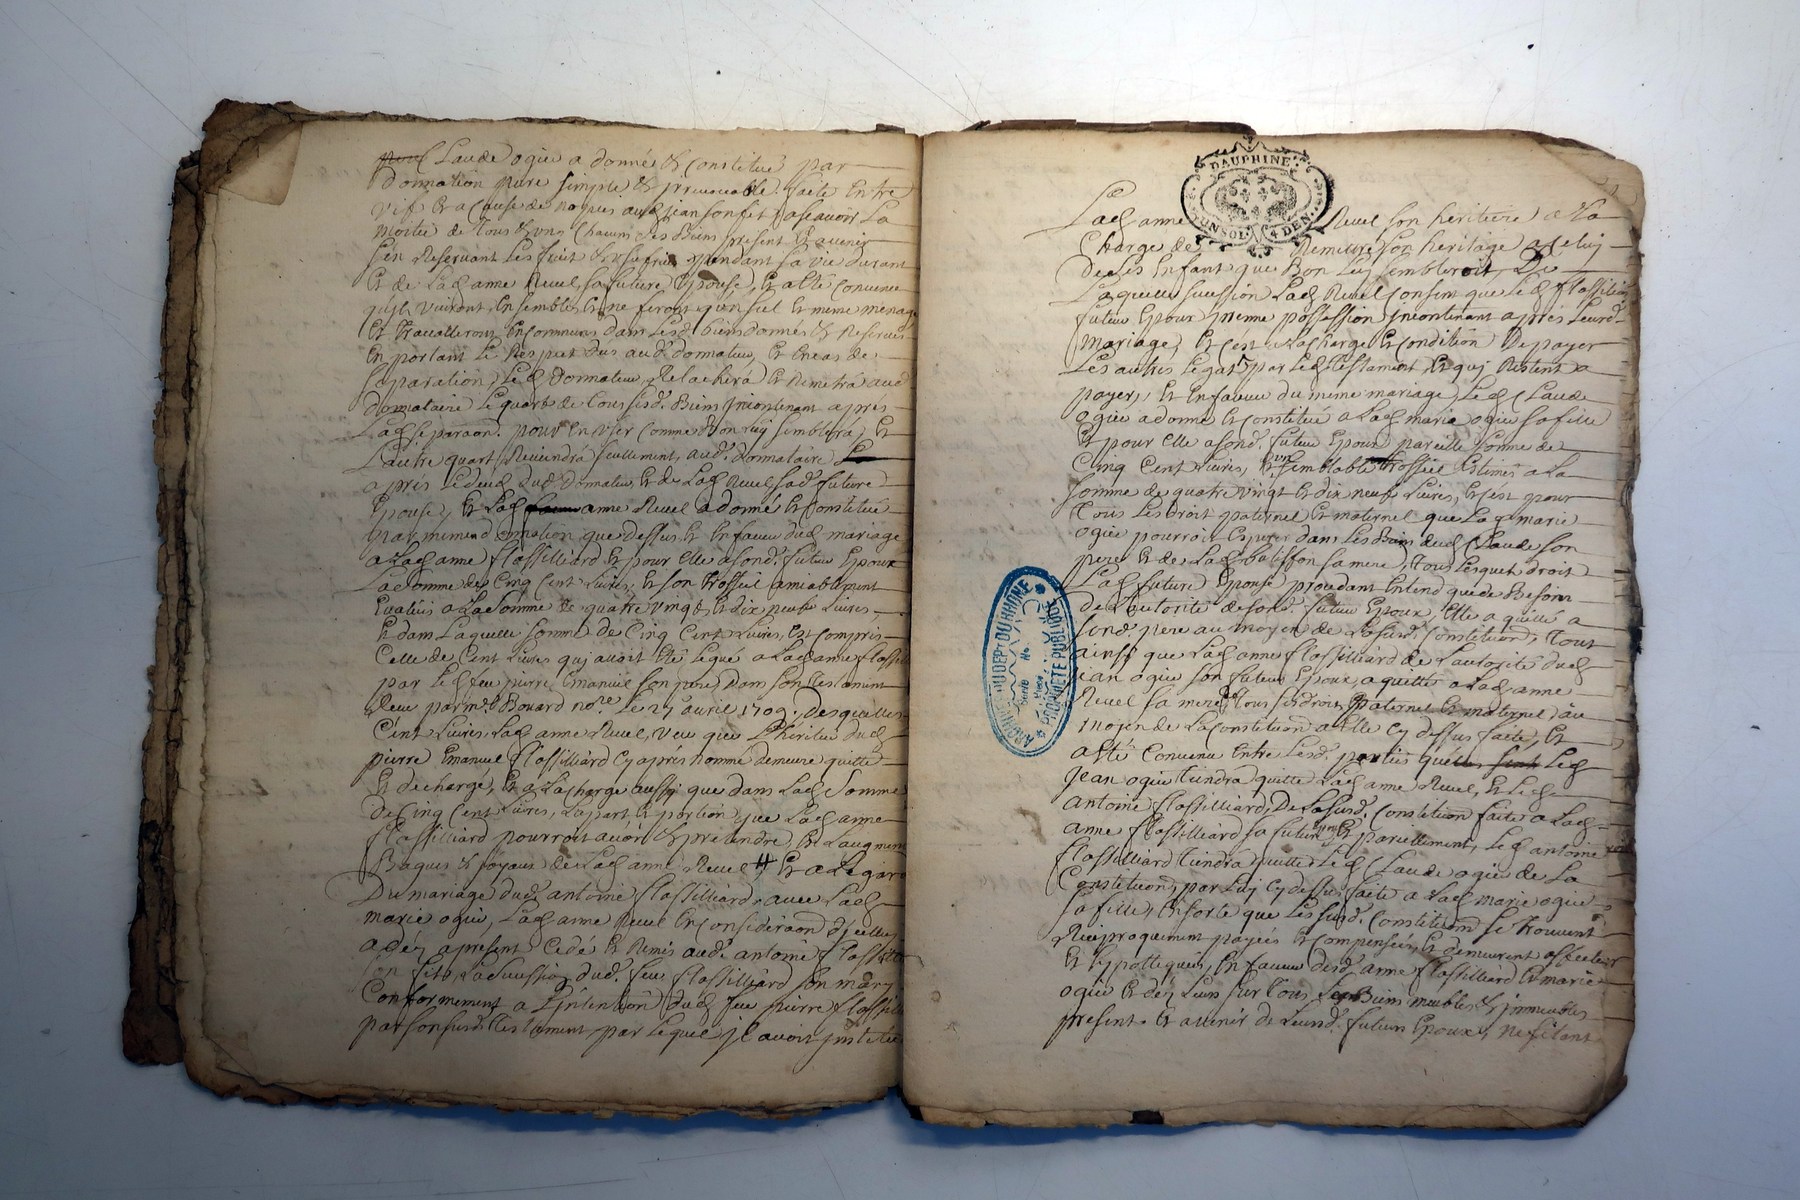 Claude ogier a donné & Constitué par
donnation pure simple & jrreuocable faite Entre
vifs Et a cause de nopces aud jean son fils a scauoir La
moitié de Tous & vns Chacuns ses Biens present & auenir
s'en Reservant Les fruit & vsufruit pendant sa vie durant
Et de Lad anne Reuel, sa future Epouse, Et a Eté Convenu
quils viuront Ensembles Et ne feront qu'un seul Et meme menage
Et trauailleront En Commun dans Lesd. biens donnés & Reservés
En portant Le Respect dus aud. donnateur, Et En cas de
separation, Led donnateur Relachera Et Remettra aud
donnataire Le quart de Tous sesd. Biens jncontinant après
Lad separaon. pour En vser Comme Bon Luy semblera, Et
L'autre quart Reuiendra seullement aud. donnataire
après Le deced dud. donnateur Et de Lad Reuel sad. future
Epouse, Et Lad anne Reuel a donné Et Constitué
par meme donnation que dessus Et En faueur dud mariage
a Lad anne flassilliard Et pour Elle a sond. futeur Epoux
La somme de Cinq Cent Liures, Et son trosseil amiablement
Evalués a La Somme de quatre vingt Et dix neufs Liures
Et dans Laquelle somme de Cinq Cent Liures, Est Compris
Celle de Cent Liures quj auoit Eté Legué a Lad anne flassill
par Led feu pierre Emanuel son pere, dans son testament
Reçu par me. Bouard nore. Le 27 auril 1709, desquelles
Cent Liures, Lad anne Reuel, veu que L'heritier dud
pierre Emanuel flassilliard Cy après nommé demeure quitte
Et dechargé, Et a La charge aussy que dans Lad Somme
de Cinq Cent Liures, La part Et portion que Lad anne
flassilliard pourroit auoir & pretendre, Et L'augment
Bagues & joyaux de Lad anne Reuel # Et a L'egard
Du mariage dud. antoine flassilliard auec Lad
marie ogier, Lad anne Reuel En Consideraon d'jcelluy
a dez a present Cedé Et Remis aud. antoine flassill
son fils, La sucession dud. feu flassilliard son mary
Conformement a L'jntention dud feu pierre flassill
par son susd. testament par Lequel jl auoit jnstitué
Lad anne Reuel son heritiere, a La
Charge de Remettre son heritage a Celuy
de ses Enfant que Bon Luy sembleroit, De
Laquelle sucession Lad Reuel Consent que Led flassilliard
futeur Epoux prenne possession jncontinant après Leurd.
mariage, Et c'est a La charge Et Condition De payer
Les autres Legats par Led testament, Et quj Restent a
payer, Et En faueur du meme mariage, Led Claude
ogier a donné Et Constitué a Lad marie ogier sa fille
Et pour Elle a sond. futeur Epoux pareille somme de
Cinq Cent Liures, Et vn semblable trossiel Estimés a La
somme de quatre vingt Et dix neufs Liures, Et c'est pour
Tous Les droit paternel Et maternel que Lad marie
ogier pourroit Esperer dans Les Biens dud Claude son
pere Et de Lad batisson sa mere, Tous Lesquels droit
Lad future Epouse procedant En tend que de Besoin
de L'autorité de sond. futeur Epoux, Elle a quitté a
sond. pere au moyen de La susd. Constitution, Tout
ainsy que Lad anne flassilliard de L'autorité dud
jean ogier son futeur Epoux, a quitté a Lad anne
Reuel sa mere Tous ses droits paternel Et maternel au
moyen de La Constitution a Elle Cy dessus faite, Et
a Eté Convenu Entre Lesd. parties que Led
Jean ogier tiendra quitte Lad anne Reuel, Et Led
antoine flassilliard, De La susd. Constitution faite a Lad
anne flassilliard sa future, Et pareillement, Led antoine
flassilliard tiendra quitte Led Claude ogier de La
Constitution par Luy Cy dessus faite a Lad marie ogier
sa fille, En sorte que Les susd. Constitutions se trouuent
Reciproquement payées Et Compensées, Et demeurent affectées
Et hypottequées, En faueur desd. anne flassilliard Et marie
ogier Et des Leurs sur Tous Les Biens meubles & jmmeubles
present Et avenir de Leursd. futeurs Epoux, ne fesant
DAUPHINE
UN SOL 4 DEN
ARCHIVES DU DEPt DU RHÔNE
PROPRIÉTÉ PUBLIQUE